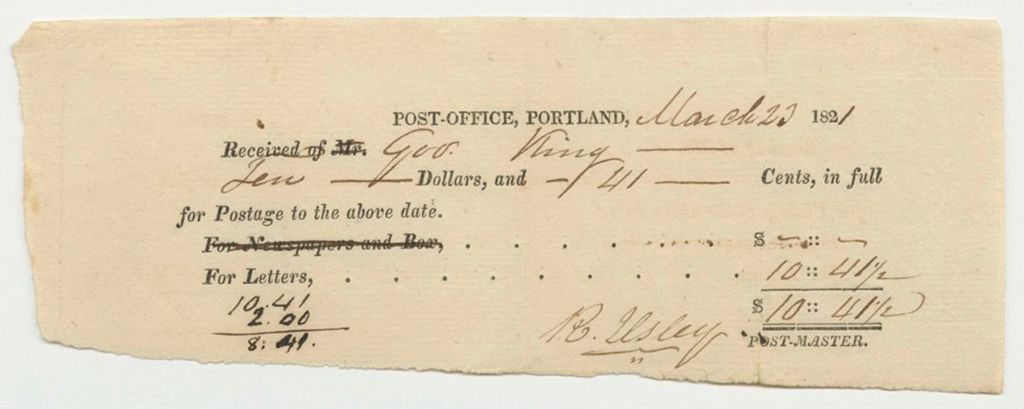 POST-OFFICE, PORTLAND, March 23 1821
Received of Mr. Gov. King
Ten Dollars, and 41 Cents, in full
for Postage to the above date.
For Newspapers and Box, . . . . . . $ - :: -
For Letters, . . . . . . . . . 10 :: 41 1/2
$ 10 :: 41 1/2
10.41
2.00
8:41.
R. Ilsley
POST-MASTER.